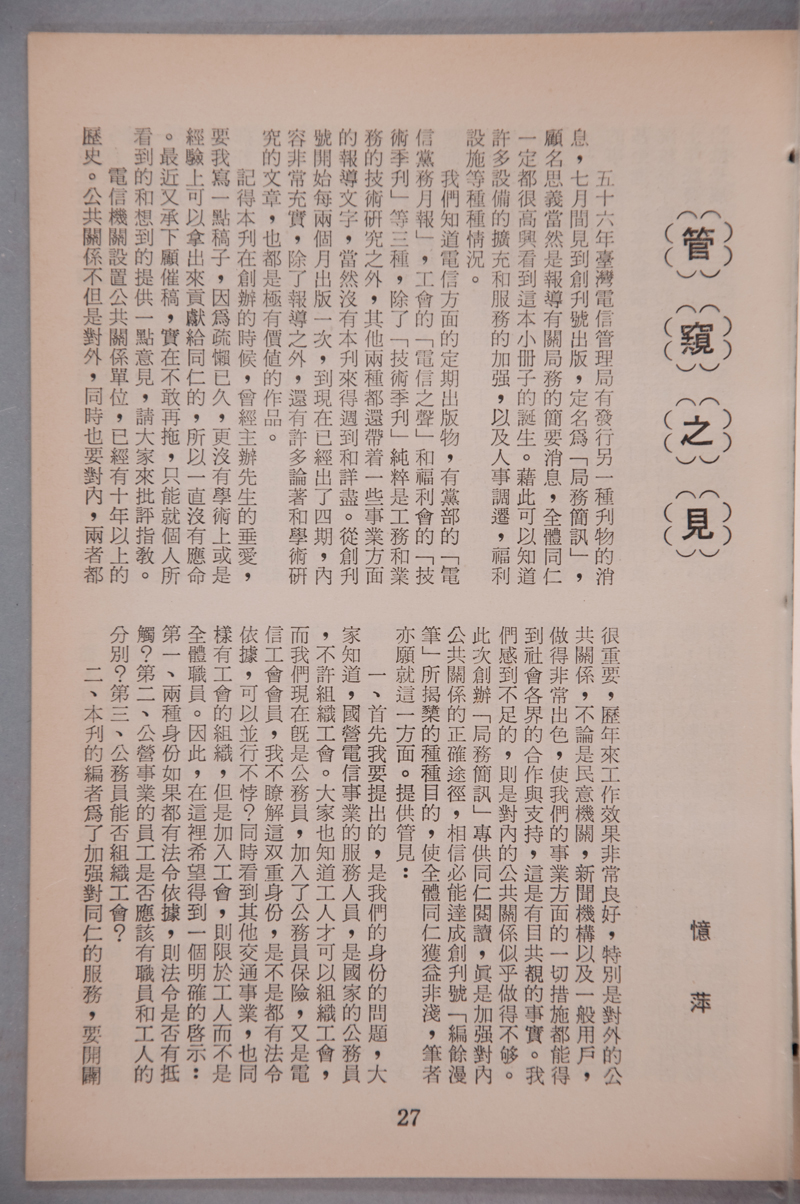 管窺之見
憶萍
五十六年臺灣電信管理局有發行另一種刋物的消
息，七月間見到創刋號出版，定名爲「局務簡訊」，
顧名思義當然是報導有關局務的簡要消息，全體同仁
一定都很高興看到這本小冊子的誕生。藉此可以知道
許多設備的擴充和服務的加强，以及人事調遷，福利
設施等種種情況。
我們知道電信方面的定期出版物，有黨部的「電
信黨務月報」，工會的「電信之聲」和福利會的「技
術季刋」等三種，除了「技術季刋」純粹是工務和業
務的技術硏究之外，其他兩種都還帶着一些事業方面
的報導文字，當然沒有本刋來得週到和詳盡。從創刋
號開始每兩個月出版一次，到現在已經出了四期，內
容非常充實，除了報導之外，還有許多論著和學術硏
究的文章，也都是極有價値的作品。
記得本刋在創辦的時候，曾經主辦先生的垂愛，
要我寫一點稿子，因爲疏懶已久，更沒有學術上或是
經驗上可以拿出來貢獻給同仁的，所以一直沒有應命
。最近又承下顧催稿，實在不敢再拖，只能就個人所
看到的和想到的提供一點意見，請大家來批評指敎。
電信機關設置公共關係單位，已經有十年以上的
歷史。公共關係不但是對外，同時也要對內，兩者都
很重要，歷年來工作效果非常良好，特別是對外的公
共關係，不論是民意機關，新聞機構以及一般用戶，
做得非常出色，使我們的事業方面的一切措施都能得
到社會各界的合作與支持，這是有目共覩的事實。我
們感到不足的，則是對內的公共關係似乎做得不够。
此次創辦「局務簡訊」專供同仁閱讀，眞是加强對內
公共關係的正確途徑，相信必能達成創刋號「編餘漫
筆」所揭櫫的種種目的，使全體同仁獲益非淺，筆者
亦願就這一方面。提供管見：
一、首先我要提出的，是我們的身份的問題，大
家知道，國營電信事業的服務人員，是國家的公務員
，不許組織工會。大家也知道工人才可以組織工會，
而我們現在旣是公務員，加入了公務員保險，又是電
信工會會員，我不瞭解這双重身份，是不是都有法令
依據，可以並行不悖？同時看到其他交通事業，也同
樣有工會的組織，但是加入工會，則限於工人而不是
全體職員。因此，在這裡希望得到一個明確的啓示：
第一、兩種身份如果都有法令依據，則法令是否有抵
觸？第二、公營事業的員工是否應該有職員和工人的
分別？第三、公務員能否組織工會？
二、本刋的編者爲了加强對同仁的服務，要開闢
27